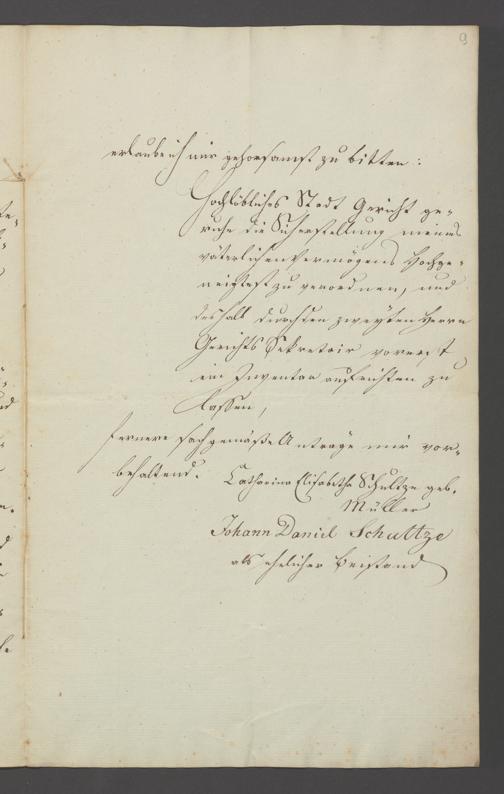 9
erlaube ich mir gehorsamst zu bitten:
Hochlöbliches Stadt Gericht ge-
ruhe die Sicherstellung meines
väterlichen Vermögens Hochge-
neigtest zu verordnen, und
deshalb durch den zweyten Herrn
Gerichts Sekretair vorerst
ein Inventar aufrichten zu
lassen,
fernere sachgemäße Anträge mir vor-
behaltend.
Catharina Elisabetha Schultze geb.
Müller
Johann Daniel Schultze
als ehelicher Beistand